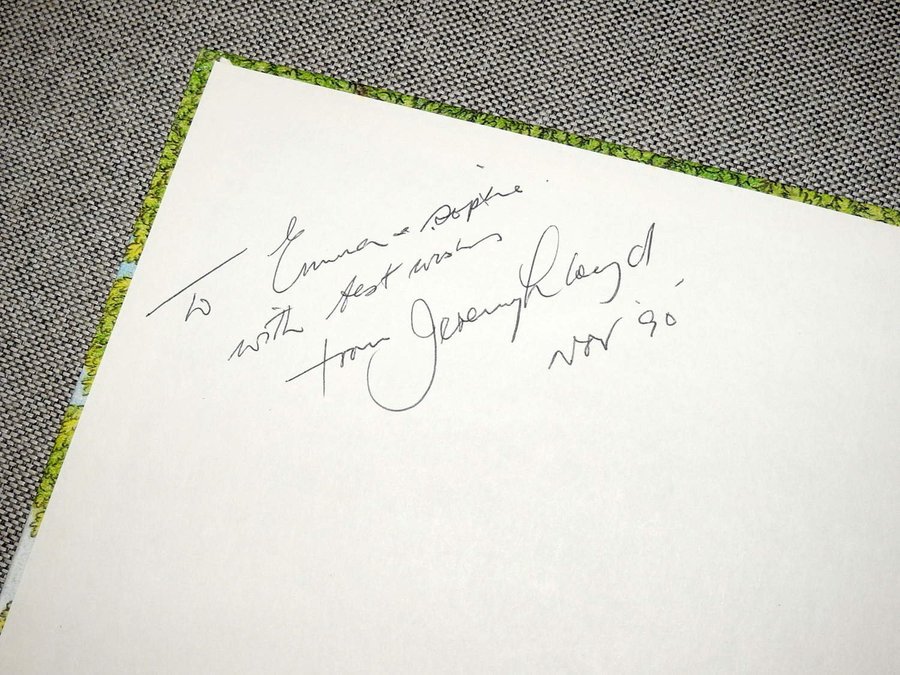 To Emma & Sophie
with best wishes
from Jeremy Lloyd
Nov '90'